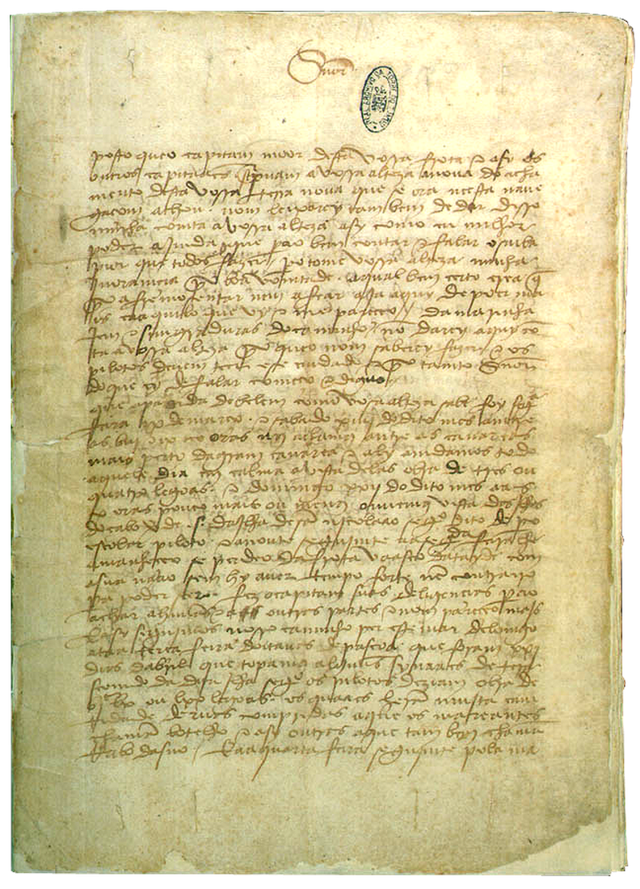 Snõr
posto queo capitam moor desta vossa frota e asy os
outros capitaães screpuam avossa alteza anoua do acha
mento desta vossa terra noua que se ora neesta naue
gaçom achou. nom leixarey tambem de dar disso
minha comta avossa alteza asy como eu milhor
poder ajmda que pera obem contar e falar o saiba
pior que todos fazer. pero tome vossa alteza minha
jnoramçia por boa vomtade. aqual bem certo crea q̃
por afremosentar nem afear aja aquy de poer ma
is caaquilo que vy e me pareceo / da marinha
jem e simgraduras do caminho nõ darey aquy cõ
ta avossa alteza por queo nom saberey fazer e os
pilotos deuem teer ese cuidado e por tanto Snõr
do que ey de falar começo e diguo /
que apartida de belem como vossa alteza sabe foy segª
feira ix de março. e sabado xiiij do dito mes amtre
as biij e ix oras nos achamos antre as canareas
mais perto da gram canarea e aly amdamos todo
aquele dia em calma avista delas obra de tres ou
quatro legoas. e domingo xxij do dito mes aas
x oras pouco mais ou menos ouuemos vista das jlhas
do cabo verde .s. da jlha de sã njcolaao segº dito de pº
escolar piloto. e anoute segujmte aa segda feira lhe
amanheceo se perdeo da frota vaasco datayde com
asua naao sem hy auer tempo forte nẽ contrairo
pera poder seer. fez ocapitam suas deligençias pera
o achar ahuũas e a outras partes e nom pareceo mais
E asy segujmos nosso caminho per este mar delomgo
ataa terça feira doitauas de pascoa que foram xxj
dias dabril que topamos alguũs synaaes de tera
seemdo da dita jlha segº os pilotos deziam obra de
bjᶜ lx ou lxx legoas. os quaaes herã mujta cam
tidade deruas compridas aque os mareantes
chamã botelho e asy outras aque tam bem chamã
Rabo dasno / E aaquarta feira segujmte pola ma